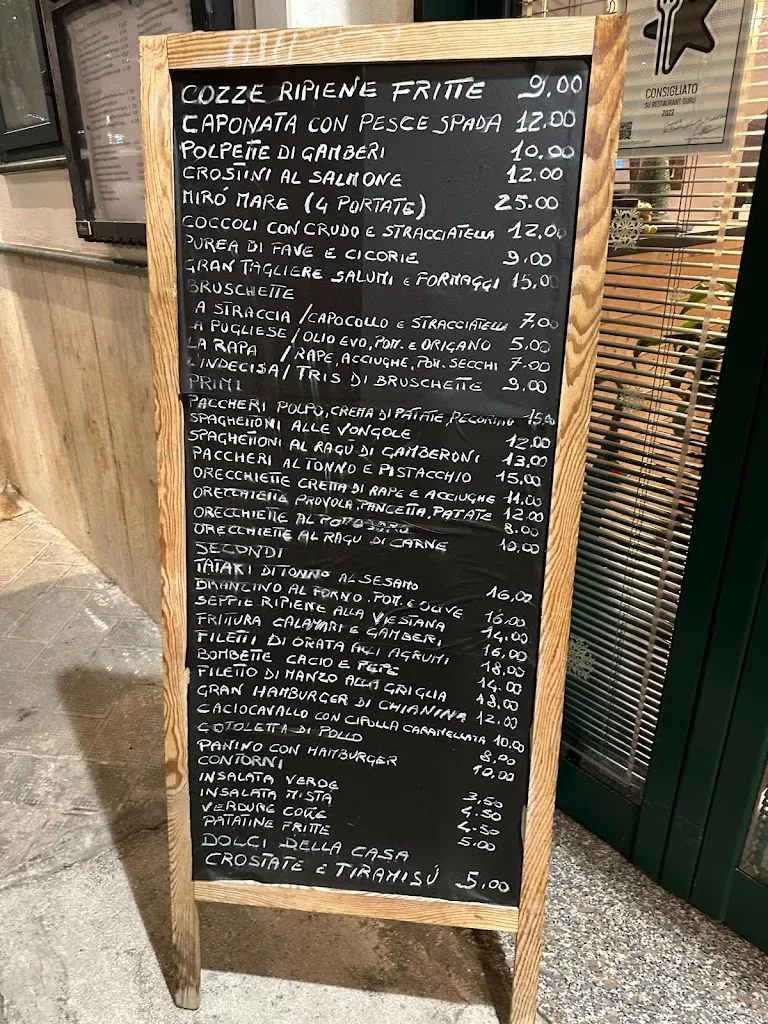 COZZE RIPIENE FRITTE 9.00
CAPONATA CON PESCE SPADA 12.00
POLPETTE DI GAMBERI 10.00
CROSTINI AL SALMONE 12.00
MIRÓ MARE (4 PORTATE) 25.00
COCCOLI CON CRUDO E STRACCIATELLA 12.00
PUREA DI FAVE E CICORIE 9.00
GRAN TAGLIERE SALUMI E FORMAGGI 15,00
BRUSCHETTE
LA STRACCIA / CAPOCOLLO E STRACCIATELLA 7.00
LA PUGLIESE / OLIO EVO, POM. E ORIGANO 5.00
LA RAPA / RAPE, ACCIUGHE, POM. SECCHI 7.00
L'INDECISA / TRIS DI BRUSCHETTE 9,00
PRIMI
PACCHERI POLPO, CREMA DI PATATE, PECORINO 15,00
SPAGHETTONI ALLE VONGOLE 12.00
SPAGHETTONI AL RAGÙ DI GAMBERONI 13.00
PACCHERI AL TONNO E PISTACCHIO 15,00
ORECCHIETTE CREMA DI RAPE E ACCIUGHE 11.00
ORECCHIETTE PROVOLA, PANCETTA, PATATE 12.00
ORECCHIETTE AL POMODORO 8.00
ORECCHIETTE AL RAGÙ DI CARNE 10,00
SECONDI
TATAKI DI TONNO AL SESAMO 16,00
BRANZINO AL FORNO, POM. E OLIVE 16.00
SEPPIE RIPIENE ALLA VIESTANA 14.00
FRITTURA CALAMARI E GAMBERI 16,00
FILETTI DI ORATA AGLI AGRUMI 18,00
BOMBETTE CACIO E PEPE 14.00
FILETTO DI MANZO ALLA GRIGLIA 18.00
GRAN HAMBURGER DI CHIANINA 12.00
CACIOCAVALLO CON CIPOLLA CARAMELLATA 10.00
COTOLETTA DI POLLO 8,00
PANINO CON HAMBURGER 10,00
CONTORNI
INSALATA VERDE 3,50
INSALATA MISTA 4.50
VERDURE COTTE 4.50
PATATINE FRITTE 5.00
DOLCI DELLA CASA
CROSTATE E TIRAMISÚ 5,00
CONSIGLIATO
SU RESTAURANT GURU
2022